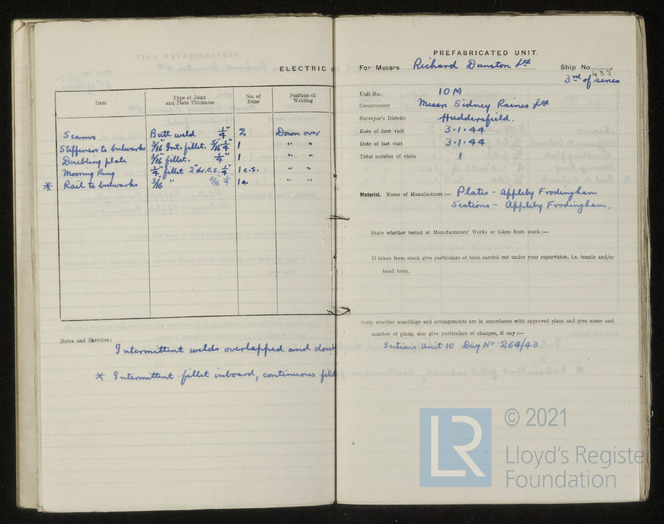 ELECTRIC
Item
Type of Joint and Plate Thickness
No. of Runs
Position of Welding
Seams Butt weld 1/4" 2 Down over
Stiffeners to bulwarks 3/16" Int. fillet. 1 " "
Doubling plate 3/16" fillet. 1 " "
Mooring Ring 1/4" fillet 1 c.s. " "
* Rail to bulwarks 3/16 " " "
Notes and Sketches:
Intermittent welds overlapped and doub
* Intermittent fillet inboard, continuous fill
PREFABRICATED UNIT.
For Messrs Richard Dunston Ltd Ship No. 435
3rd of series
Unit No. 10M
Constructors Messrs Sidney Raines Ltd
Surveyor's District Huddersfield.
Date of first visit 3.1.44
Date of last visit 3.1.44
Total number of visits 1
Material. Name of Manufacturer:— Plates - Appleby Frodingham
Sections - Appleby Frodingham.
State whether tested at Manufacturers' Works or taken from stock:—
If taken from stock give particulars of tests carried out under your supervision, i.e. tensile and/or
bend tests.
State whether scantlings and arrangements are in accordance with approved plans and give name and
number of plans, also give particulars of changes, if any:—
Sections Unit 10 Dwg No 264/43
© 2021
LR
Lloyd's Register
Foundation